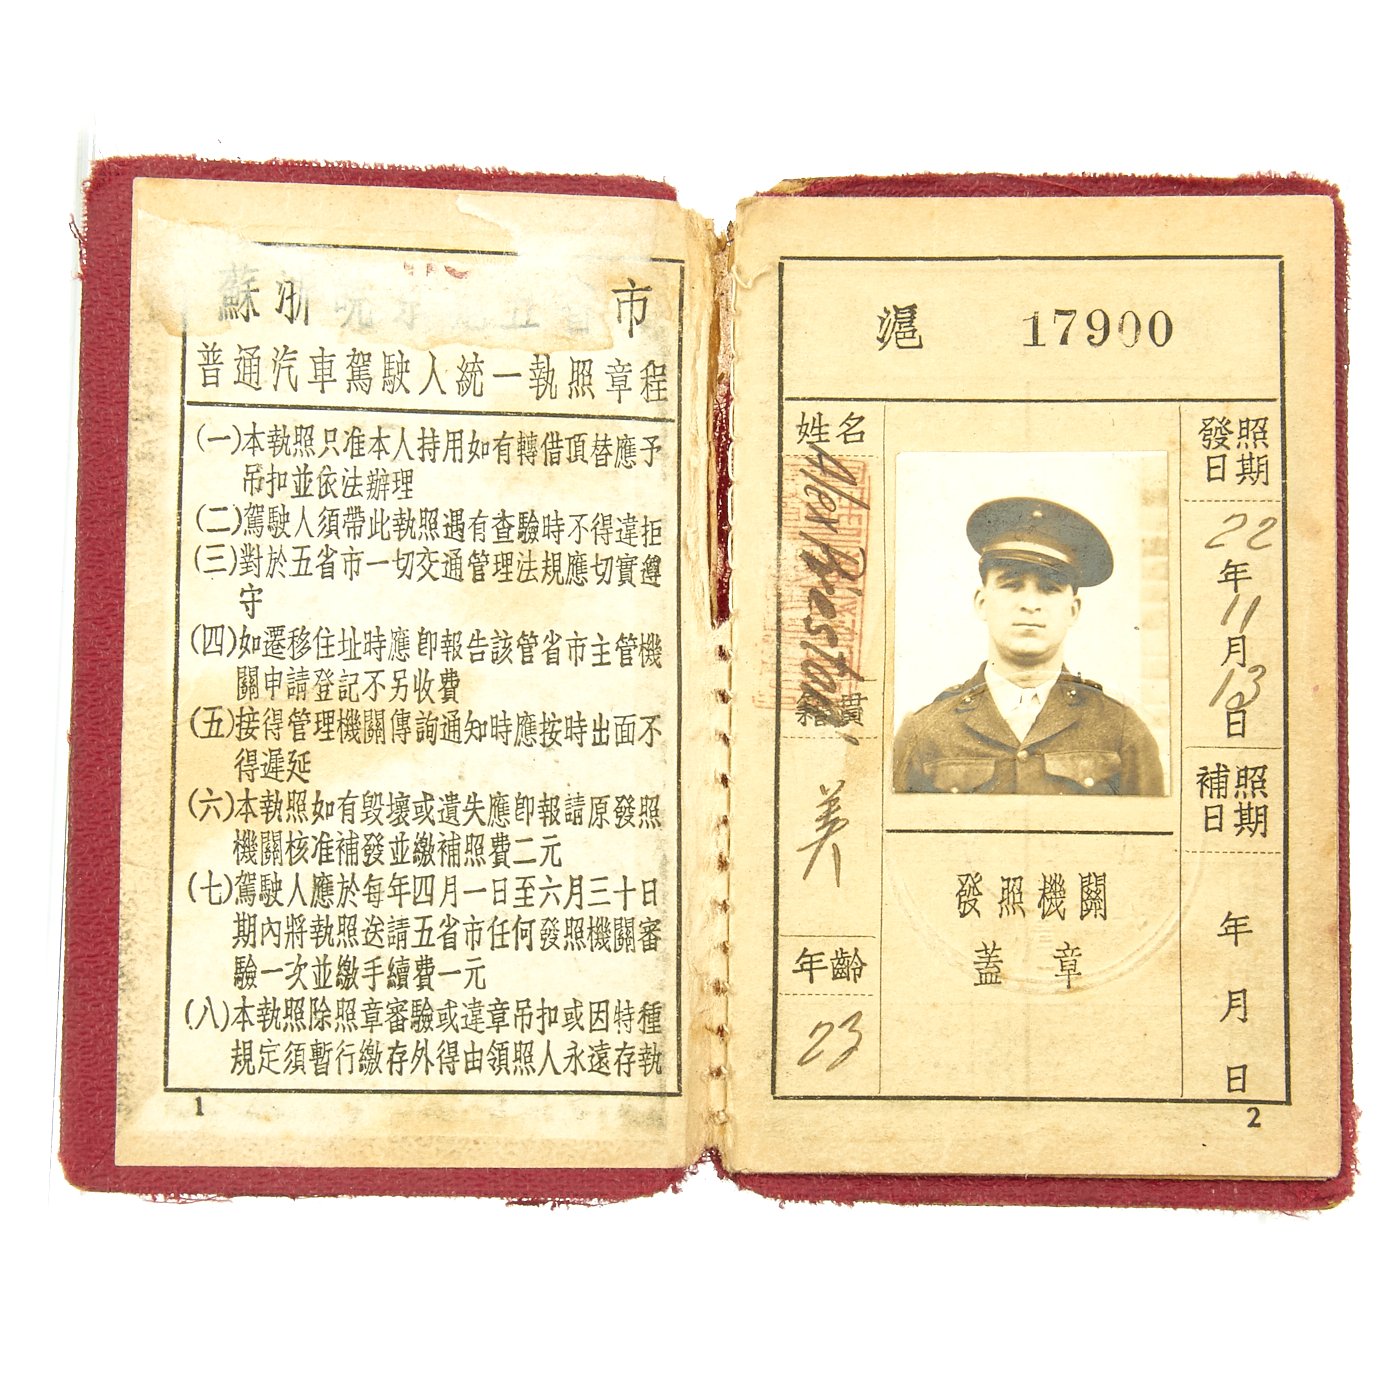 蘇浙皖京滬五省市
普通汽車駕駛人統一執照章程
(一)本執照只准本人持用如有轉借頂替應予
吊扣並依法辦理
(二)駕駛人須帶此執照遇有查驗時不得違拒
(三)對於五省市一切交通管理法規應切實遵
守
(四)如遷移住址時應卽報告該管省市主管機
關申請登記不另收費
(五)接得管理機關傳詢通知時應按時出面不
得遲延
(六)本執照如有毀壞或遺失應卽報請原發照
機關核准補發並繳補照費二元
(七)駕駛人應於每年四月一日至六月三十日
期內將執照送請五省市任何發照機關審
驗一次並繳手續費一元
(八)本執照除照章審驗或違章吊扣或因特種
規定須暫行繳存外得由領照人永遠存執
1
滬 17900
姓名
Alex Prestan
籍貫
美
年齡
23
發照機關
蓋章
發照
日期
22
年
11
月
13
日
補照
日期
年
月
日
2